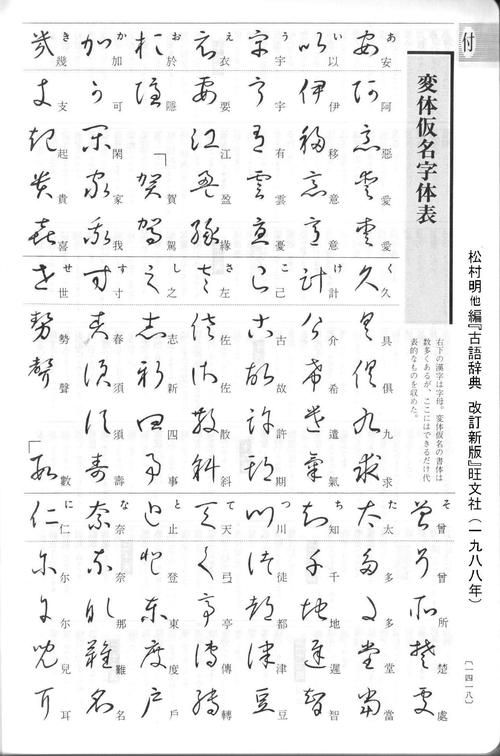 付
変体仮名字体表
右下の漢字は字母。変体仮名の書体は
数多くあるが、ここにはできるだけ代
表的なものを収めた。
あ 安 阿 惡 愛 愛
い 以 伊 移 意 意
う 宇 宇 有 雲 憂
え 衣 要 江 盈 緣
お 於 隱 「賀 駕
か 加 可 閑 家 我
き 幾 支 起 貴 喜
く 久 具 俱 九 求
け 計 介 希 遣 氣
こ 己 古 故 許 期
さ 左 佐 佐 散 斜
し 之 志 新 四 事
す 寸 春 須 須 壽
せ 世 勢 聲 「數
そ 曾 曾 所 楚 處
た 太 多 多 堂 當
ち 知 千 地 遲 智
つ 川 徒 都 津 豆
て 天 弖 亭 傳 轉
と 止 登 東 度 戶
な 奈 奈 那 難 名
に 仁 尔 尔 兒 耳
松村明他編『古語辞典 改訂新版』旺文社(一九八八年)
〔一四一八〕